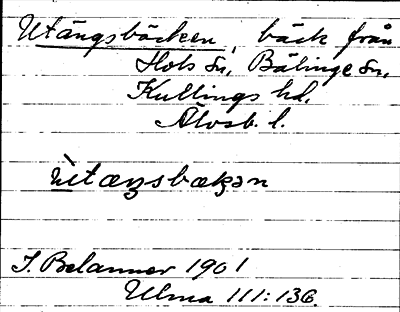 Utängsbäcken, bäck från
Hols sn, Bälinge sn,
Kullings hd,
Älvsb. l.
ùtæŋsbækən
J. Belanner 1901
Ulma 111:136.